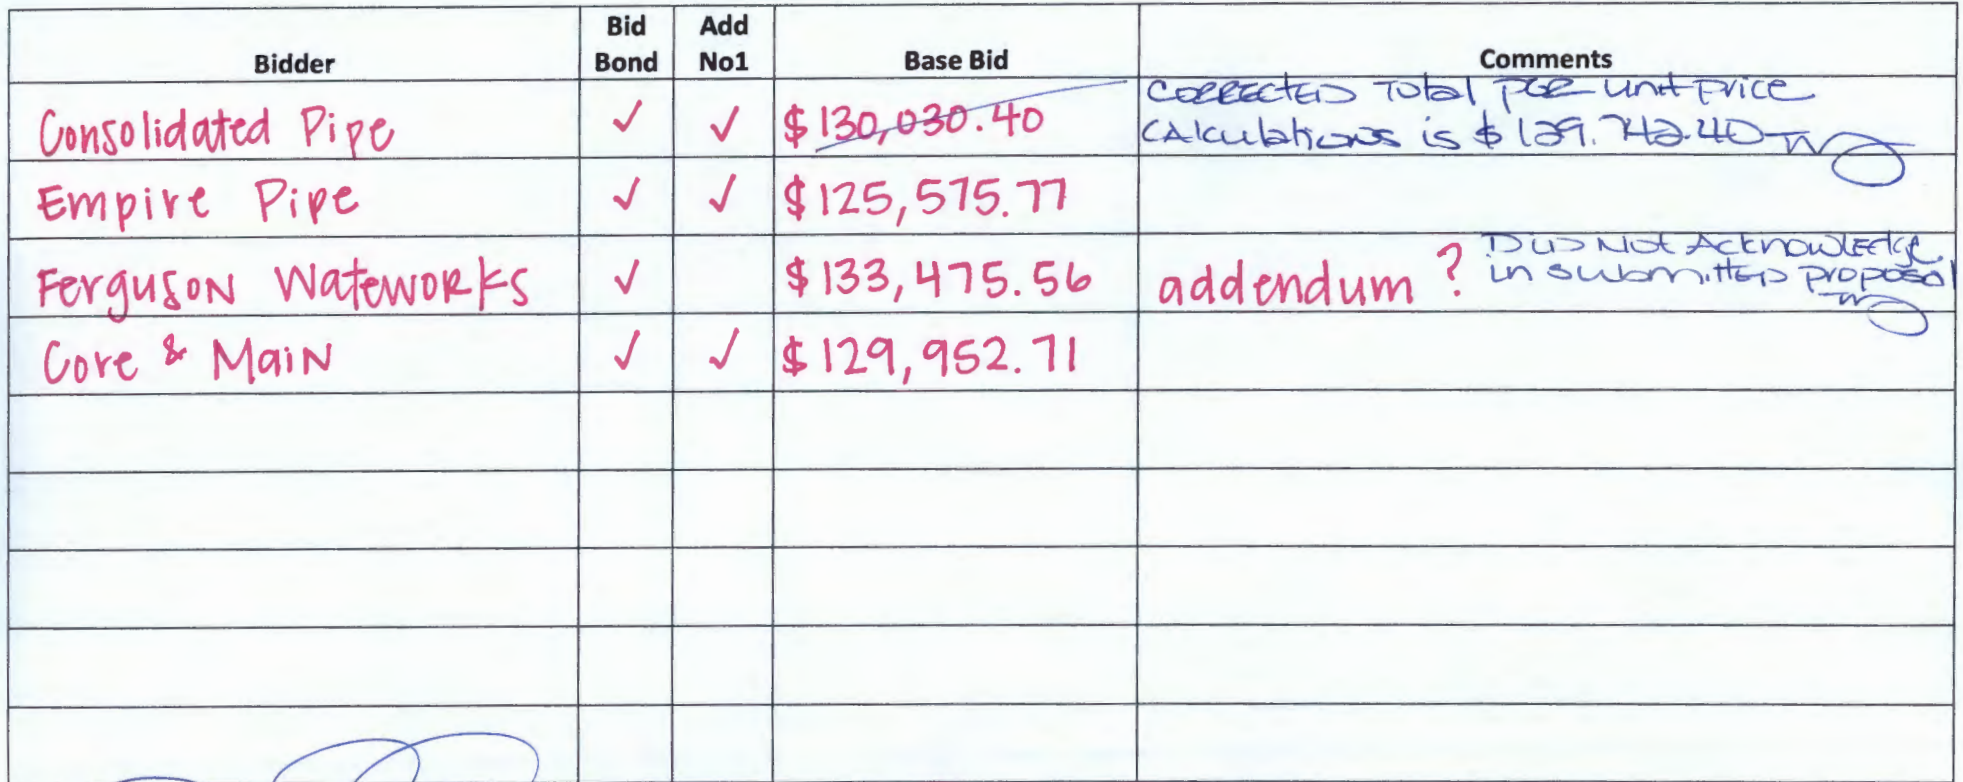 Bidder Bid Bond Add No1 Base Bid Comments
Consolidated Pipe ✓ ✓ $130,030.40 CORRECTED Total PER unit price
CAlculations is $129.742.40
Empire Pipe ✓ ✓ $125,575.77
Ferguson Wateworks ✓ $133,475.56 addendum ? DID Not Acknowledge
in submitted proposal
Core & Main ✓ ✓ $129,952.71